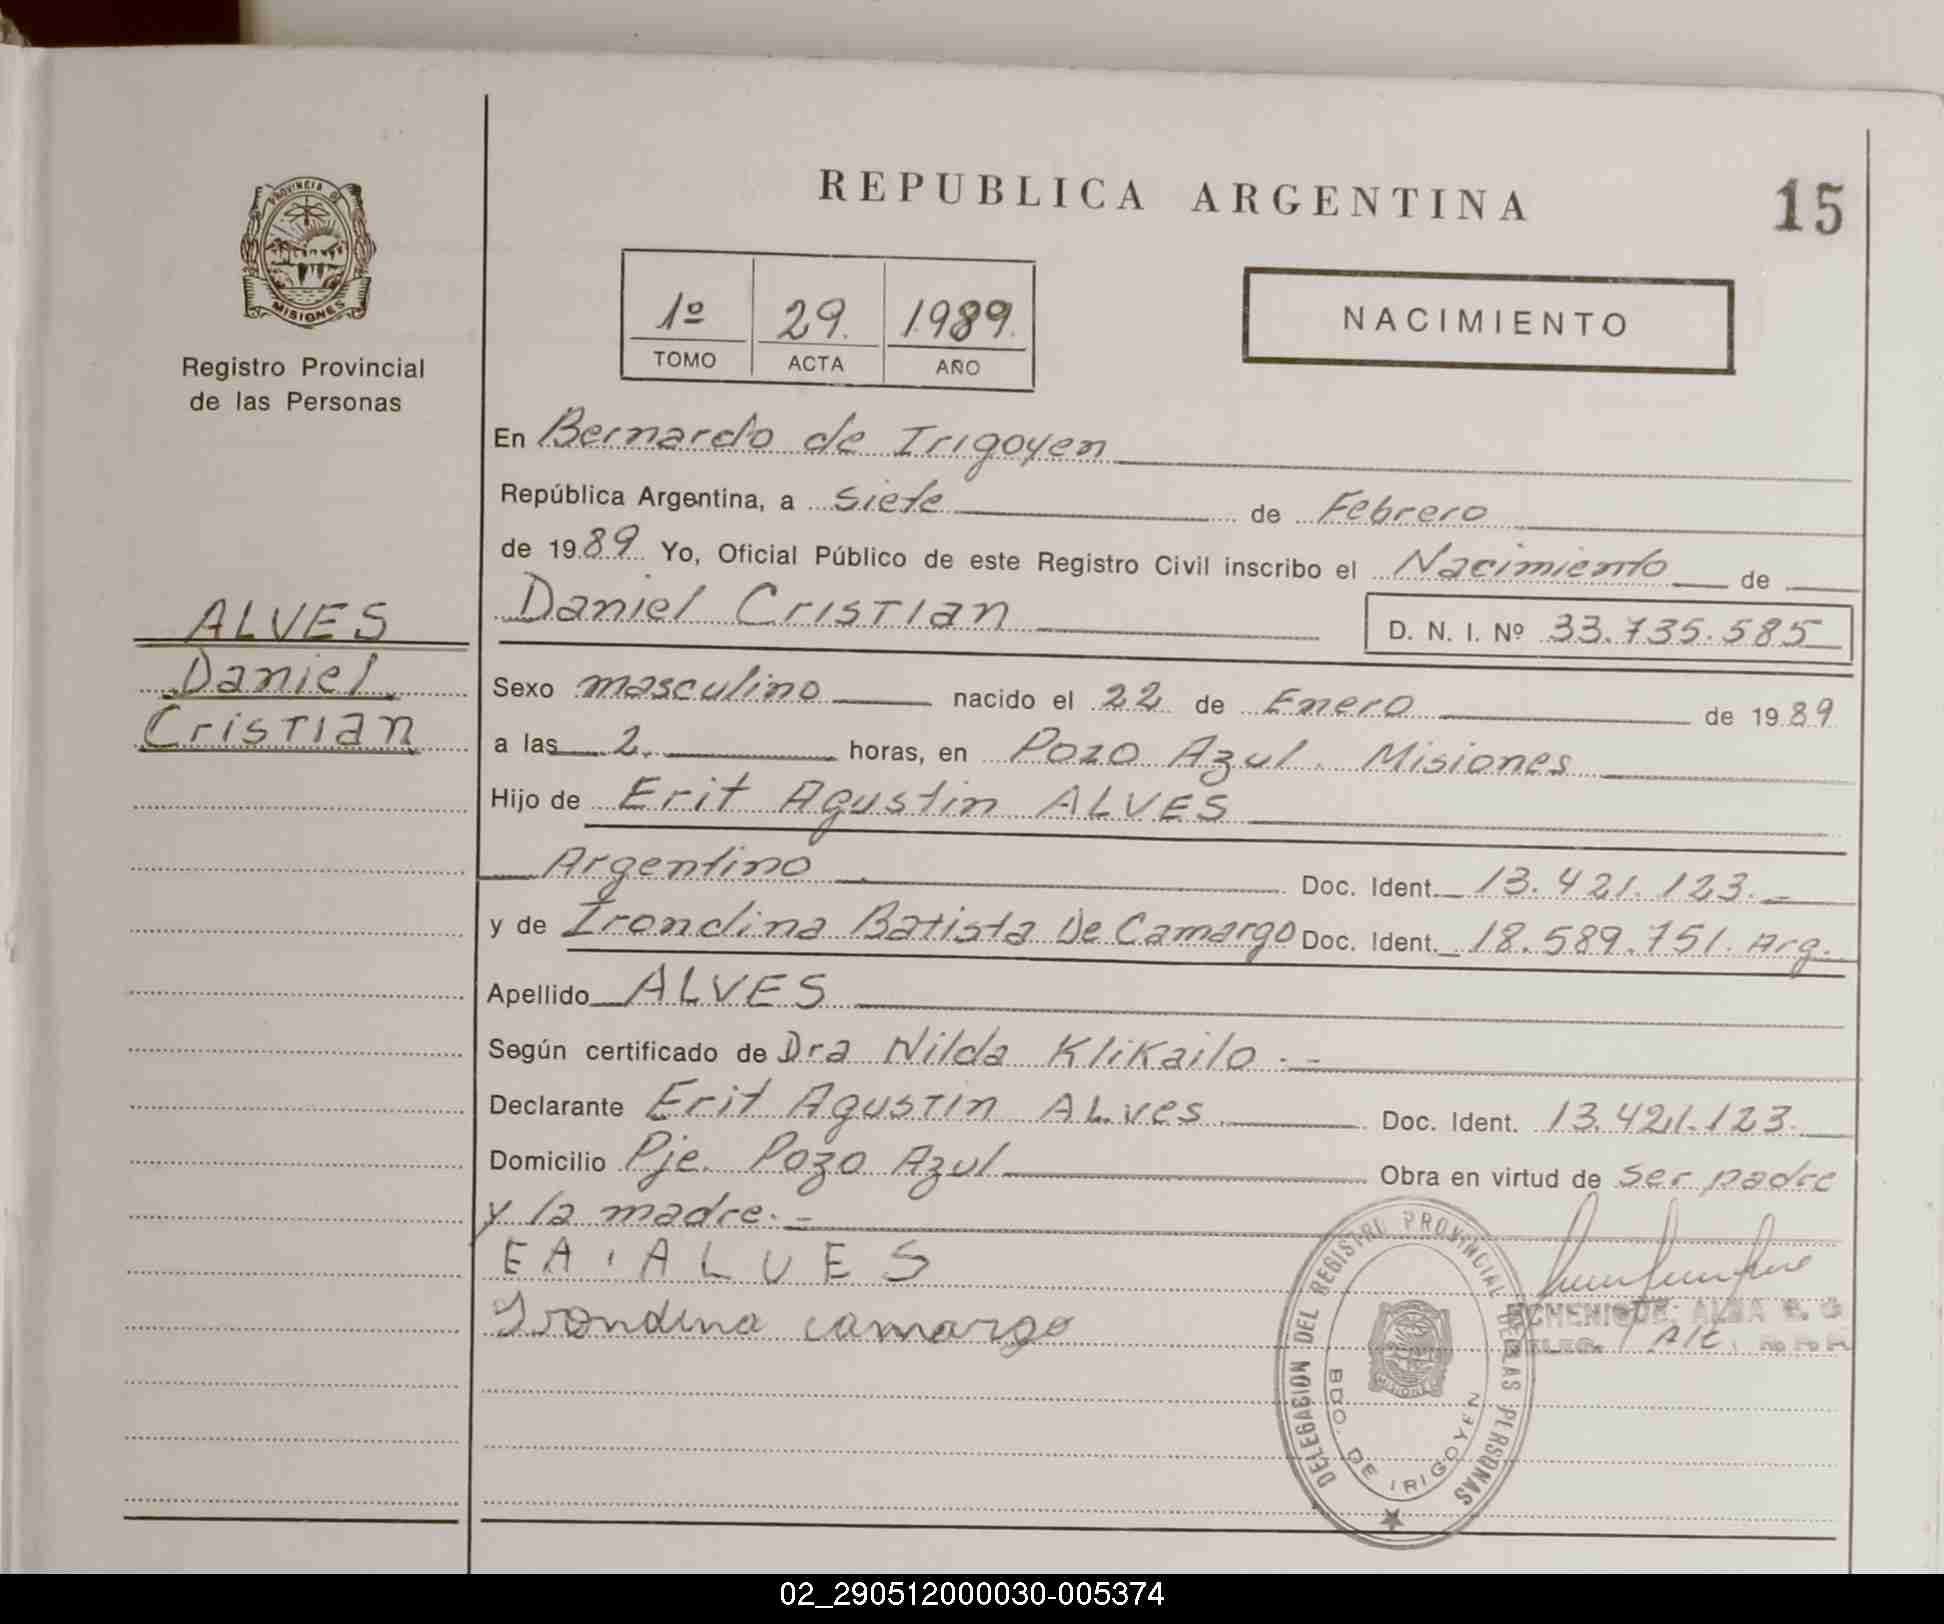 REPUBLICA ARGENTINA
15
PROVINCIA DE
MISIONES
Registro Provincial
de las Personas
1º 29. 1989.
TOMO ACTA AÑO
NACIMIENTO
En Bernardo de Irigoyen
República Argentina, a siete de Febrero
de 1989 Yo, Oficial Público de este Registro Civil inscribo el Nacimiento de
Daniel Cristian
D. N. I. Nº 33.735.585
ALVES
Daniel
Cristian
Sexo masculino nacido el 22 de Enero de 1989
a las 2. horas, en Pozo Azul. Misiones
Hijo de Erit Agustin ALVES
Argentino Doc. Ident. 13.421.123.-
y de Irondina Batista De Camargo Doc. Ident. 18.589.751. Arg.
Apellido ALVES
Según certificado de Dra Nilda Klikailo.-
Declarante Erit Agustin Alves Doc. Ident. 13.421.123.
Domicilio Pje. Pozo Azul Obra en virtud de ser padre
y la madre.-
EA. ALVES
Irondina camargo
DELEGACION DEL REGISTRO PROVINCIAL DE LAS PERSONAS
BDO. DE IRIGOYEN
ECHENIQUE, ALBA
02_290512000030-005374